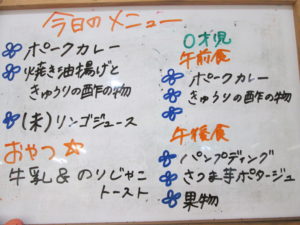 今日のメニュー
ポークカレー
焼き油揚げと
きゅうりの酢の物
(未)リンゴジュース
おやつ
牛乳&のりじゃこ
トースト
0才児
午前食
ポークカレー
きゅうりの酢の物
午後食
パンプディング
さつま芋ポタージュ
果物